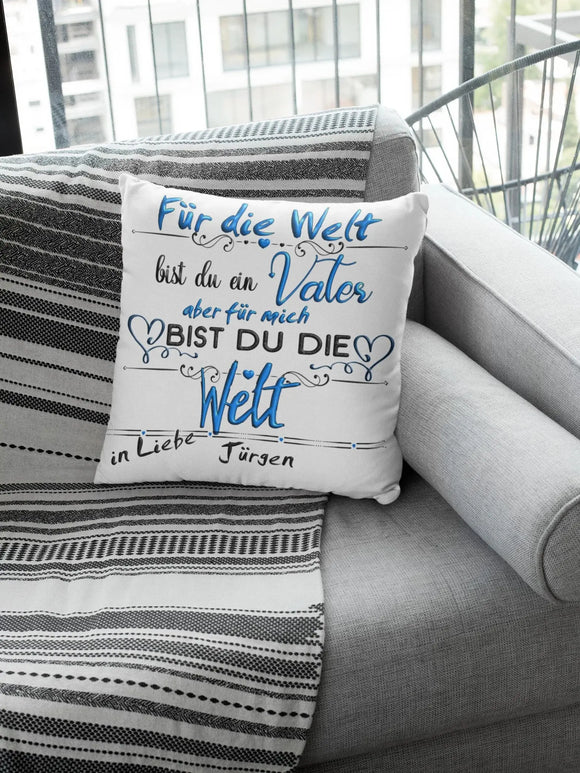 Für die Welt
bist du ein Vater
aber für mich
BIST DU DIE
Welt
in Liebe Jürgen